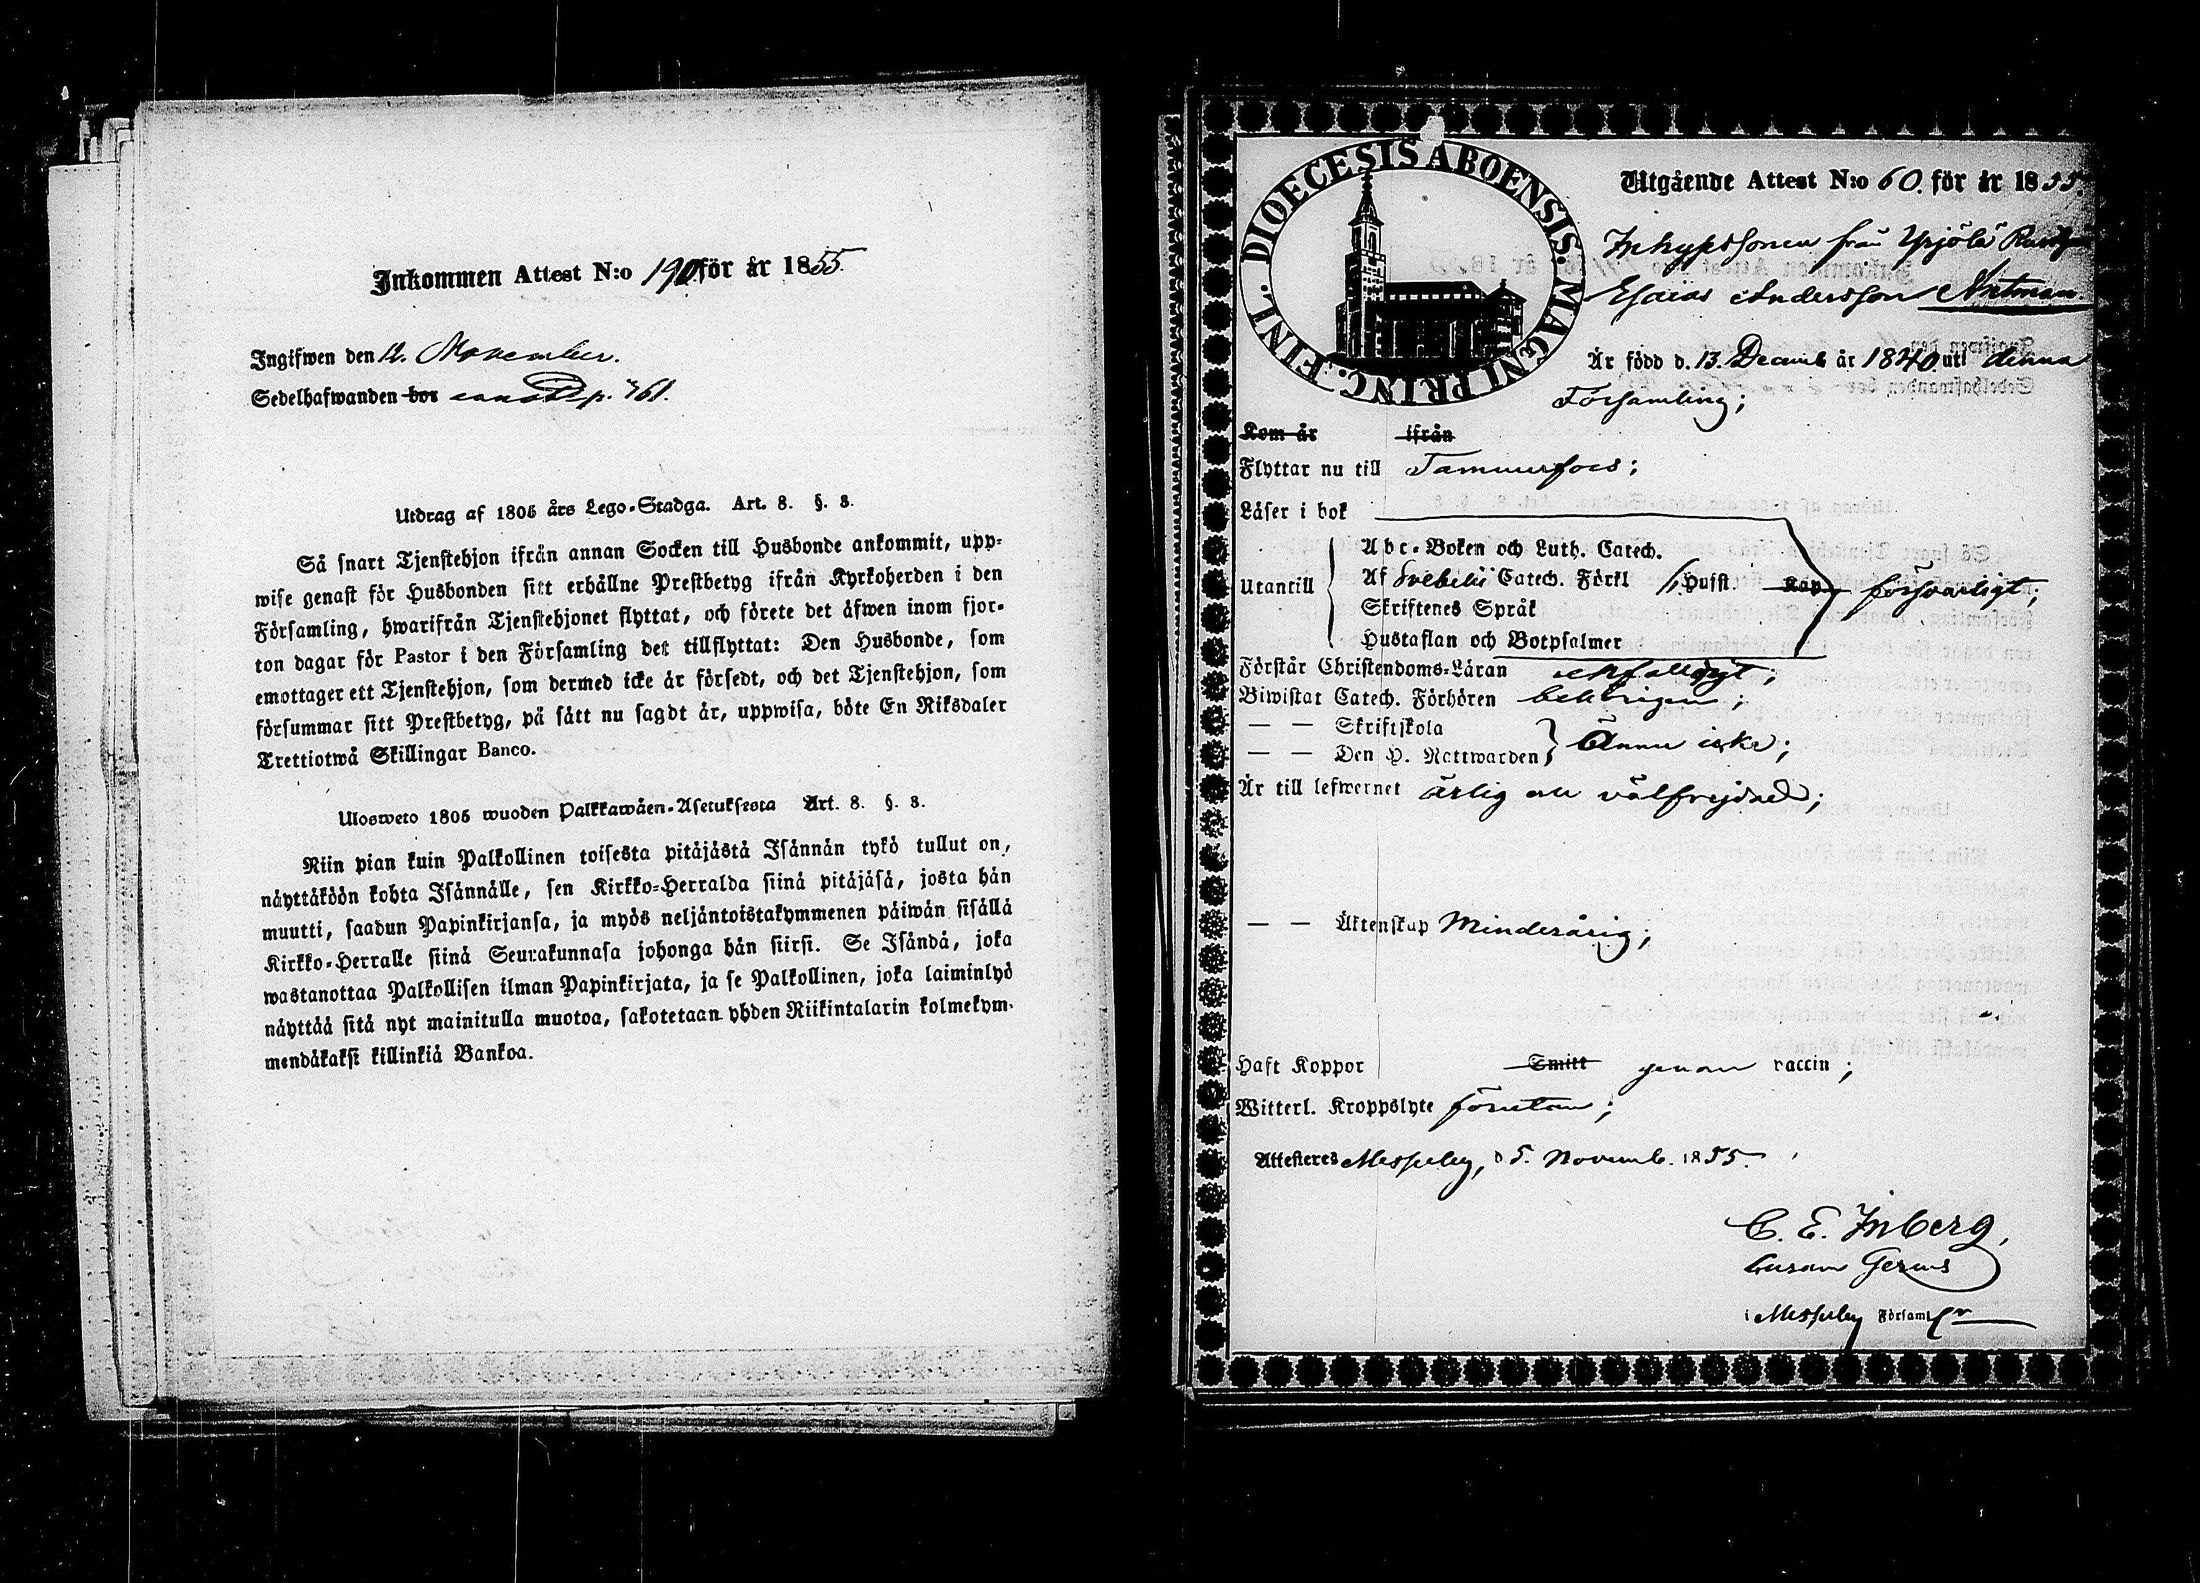 Inkommen Attest N:o 190 för år 1855.
Ingifwen den 12. November.
Sedelhafwanden bor p. 761.
Utdrag af 1805 års Lego-Stadga. Art. 8. §. 8.
Så snart Tjenstehjon ifrån annan Socken till Husbonde ankommit, upp-
wise genast för Husbonden sitt erhållne Prestbetyg ifrån Kyrkoherden i den
Församling, hwarifrån Tjenstehjonet flyttat, och förete det äfwen inom fjor-
ton dagar för Pastor i den Församling det tillflyttat: Den Husbonde, som
emottager ett Tjenstehjon, som dermed icke är försedt, och det Tjenstehjon, som
försummar sitt Prestbetyg, på sätt nu sagdt är, uppwisa, böte En Riksdaler
Trettiotwå Skillingar Banco.
Ulosweto 1805 wuoden Palkkawäen-Asetuksesta Art. 8. §. 8.
Niin pian kuin Palkollinen toisesta pitäjästä Isännän tykö tullut on,
näyttäköön kohta Isännälle, sen Kirkko-Herralda siinä pitäjäsä, josta hän
muutti, saadun Papinkirjansa, ja myös neljäntoistakymmenen päiwän sisällä
Kirkko-Herralle siinä Seurakunnasa johonga hän siirsi. Se Isändä, joka
wastanottaa Palkollisen ilman Papinkirjata, ja se Palkollinen, joka laiminlyö
näyttää sitä nyt mainitulla muotoa, sakotetaan yhden Riikintalarin kolmekym-
mendäkaksi killinkiä Bankoa.
DIOECESIS ABOENSIS. MAGNI PRINC. FINL.
Utgående Attest N:o 60. för år 1855.
Inhysessonen från
Esaias Andersson
Är född d. 13. Decemb år 1840. uti denna
Församling;
Kom år ifrån
Flyttar nu till Tammerfors;
Läser i bok
Abc-Boken och Luth. Catech.
Utantill Af Svebelii Catech. Förkl Hufst. Kap försvarligt;
Skriftenes Språk
Hustaflan och Botpsalmer
Förstår Christendoms-Läran enfalldigt;
Biwistat Catech. Förhören behörigen;
— — Skriftskola
— — Den H. Nattwarden Ännu icke;
Är till lefwernet ärlig och välfrejdad;
— — Äktenskap Minderårig;
Haft Koppor Smitt genom vaccin;
Witterl. Kroppslyte förutan;
Attesteras Messuby, d 5. Novemb. 1855.
C. E. Inberg,
curam Gerens
i Messuby Församl